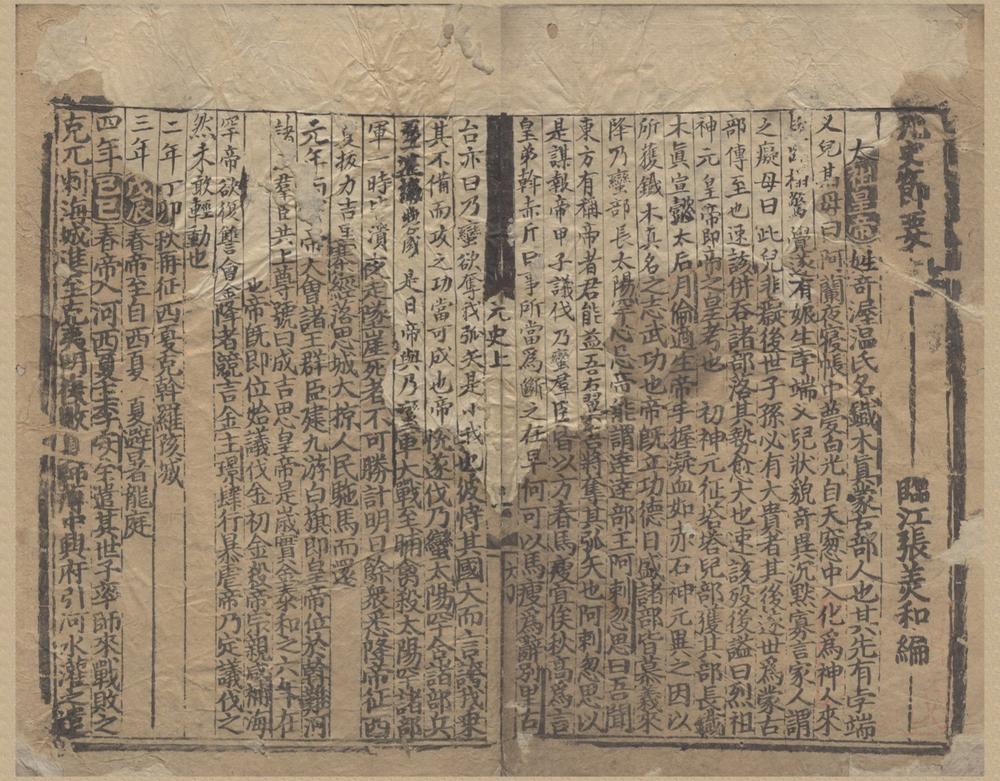 元史節要
臨江張美和編
太祖皇帝姓竒渥温氏名鐵木眞蒙古部人也其先有孛端
乂兒其母曰阿蘭夜寢帳中夢白光自天窓中入化爲神人來
驚覺遂有娠生孛端乂兒狀貌竒異沉默寡言家人謂
之癡母曰此兒非癡後世子孫必有大貴者其後逐世爲蒙古
部傳至也速該併吞諸部落其勢愈大也速該殁後謚曰烈祖
神元皇帝即帝之皇考也 初神元征塔塔兒部獲其部長鐵
木眞宣懿太后月倫適生帝手握凝血如赤石神元異之因以
所獲鐵木真名之志武功也帝旣立功德日盛諸部皆慕義來
降乃蠻部長太陽罕心忌帝能謂逹逹部王阿剌忽思曰吾聞
東方有稱帝者君能益吾右翼吾將奪其弧矢也阿剌忽思以
是謀報帝甲子議伐乃蠻羣臣皆以方春馬瘦宜俟秋高爲言
皇弟斡赤斤曰事所當爲斷之在早何可以馬瘦爲辭别里古
元史上
台亦曰乃蠻欲奪我弧矢是小我也彼恃其國大而言誇我乗
其不備而攻之功當可成也帝恱遂伐乃蠻太陽罕合諸部兵
甚盛是日帝與乃蠻軍大戰至晡禽殺太陽罕諸部
軍一時皆潰夜走墜崖死者不可勝計明日餘衆悉降帝征西
夏拔力吉里寨經落思城大掠人民駞馬而還
元年丙 帝大會諸王群臣建九游白旗即皇帝位於斡難河
羣臣共上尊號曰成吉思皇帝是歳實金泰和之六年在
也帝旣即位始議伐金初金殺帝宗親咸補海
罕帝欲復讐會金降者競言金主璟肆行暴虐帝乃定議伐之
然未敢輕動也
二年丁卯秋再征西夏克斡羅陔城
三年戊辰春帝至自西夏 夏避暑龍庭
四年己巳春帝入河西夏主李安全遣其世子率師來戰敗之
克兀剌海城進至克夷門復敗 師薄中興府引河水灌之